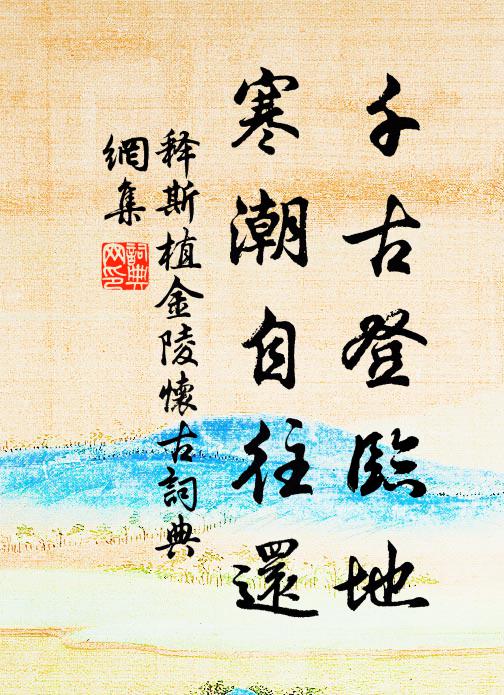 千古登臨地
寒潮自往還
释斯植金陵懷古詞典
網集
詞典
网印